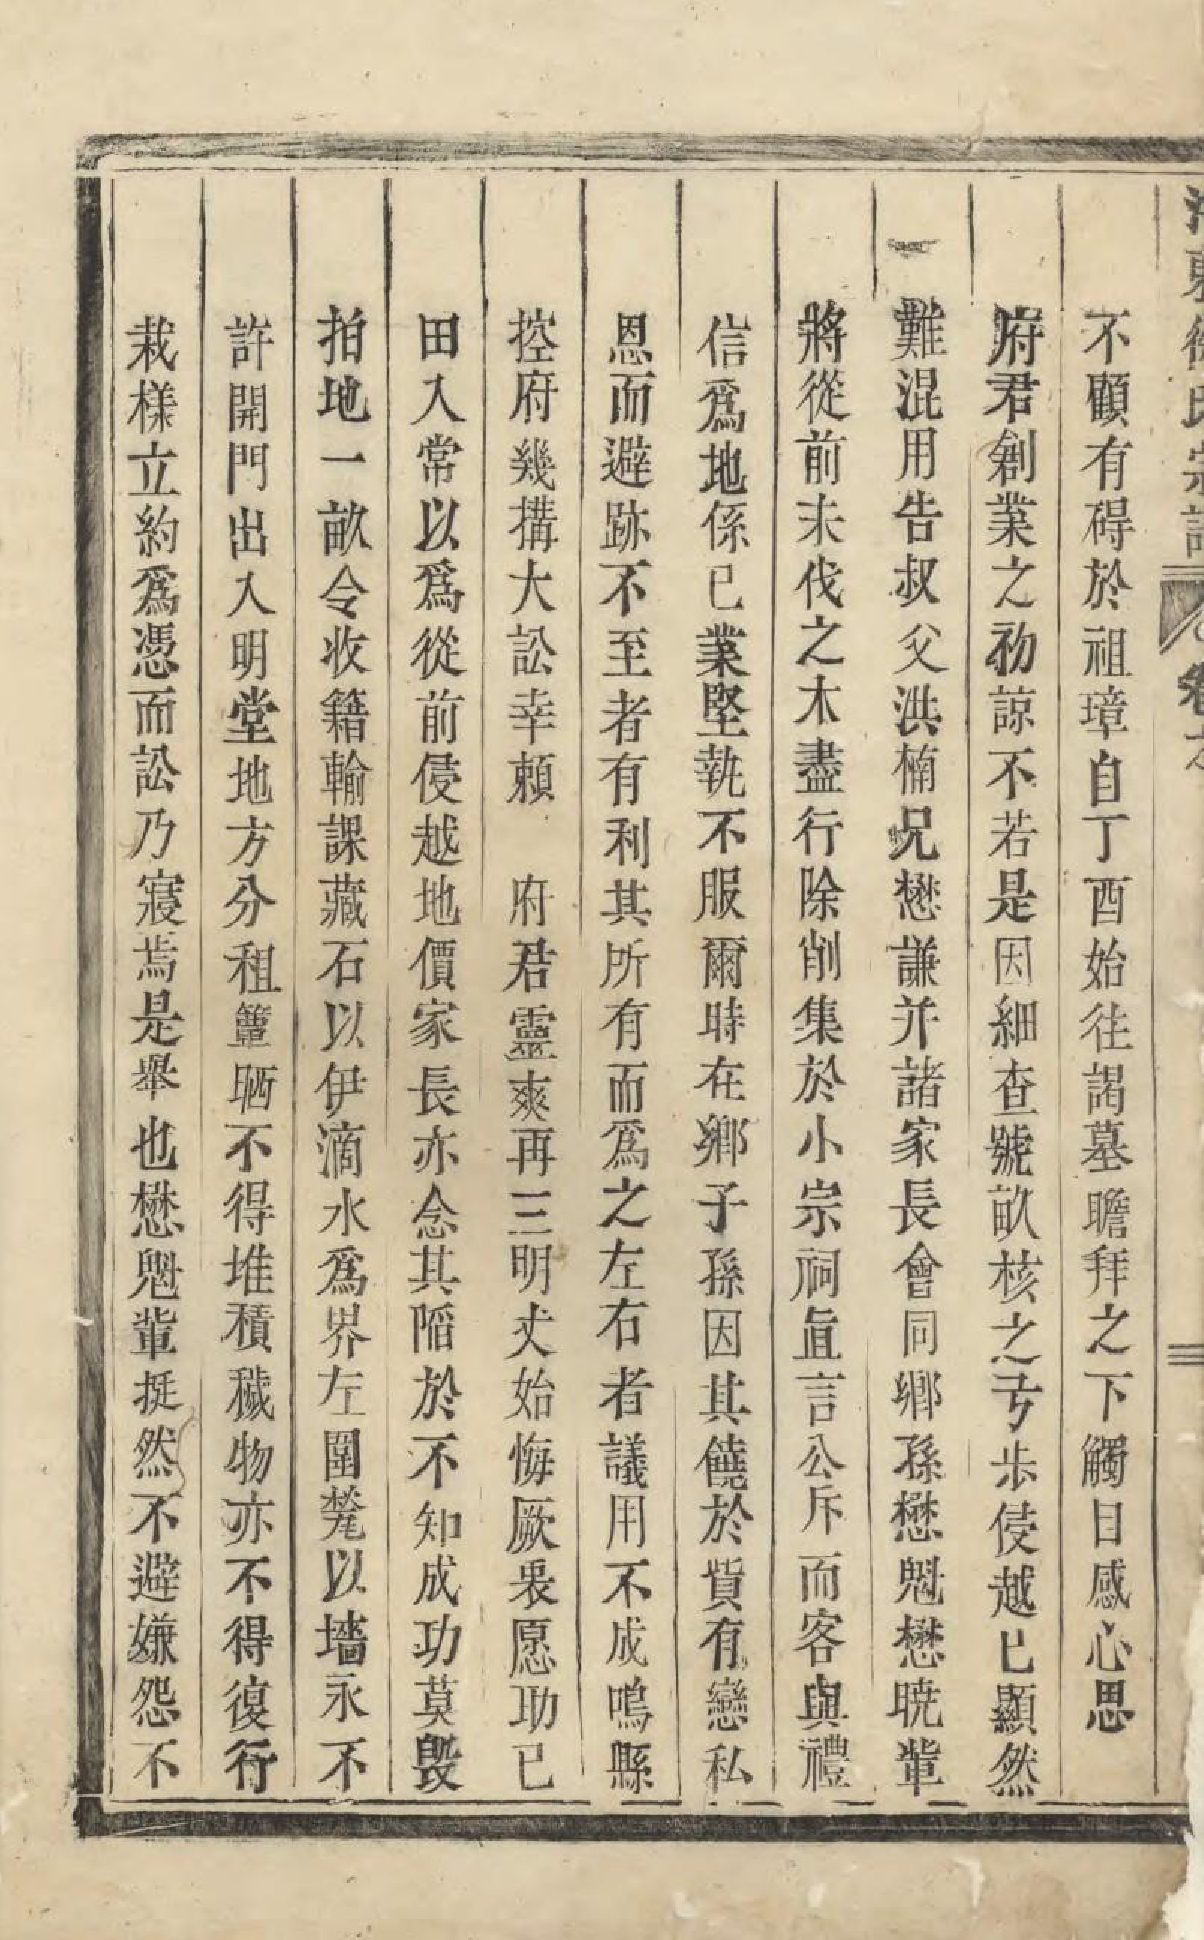 不顧有碍於祖璋自丁酉始往謁墓瞻拜之下觸目感心思
府君創業之初諒不若是因細查號畝核之亏步侵越已顯然
難混用告叔父洪楠兄懋謙并諸家長會同鄉孫懋魁懋曉軰
將從前未伐之木盡行除削集於小宗祠直言公斥而客與禮
信爲地係已業堅執不服爾時在鄉子孫因其饒於貲有戀私
恩而避跡不至者有利其所有而爲之左右者議用不成鳴縣
控府幾搆大訟幸頼 府君靈爽再三明丈始悔厥衷愿功已
田入常以爲從前侵越地價家長亦念其陷於不知成功莫毁
拍地一畝令收籍輸課藏石以伊滴水爲界左圍凳以墻永不
許開門出入明堂地方分租簟晒不得堆積穢物亦不得復行
栽様立約爲憑而訟乃寢焉是舉也懋魁軰挺然不避嫌怨不